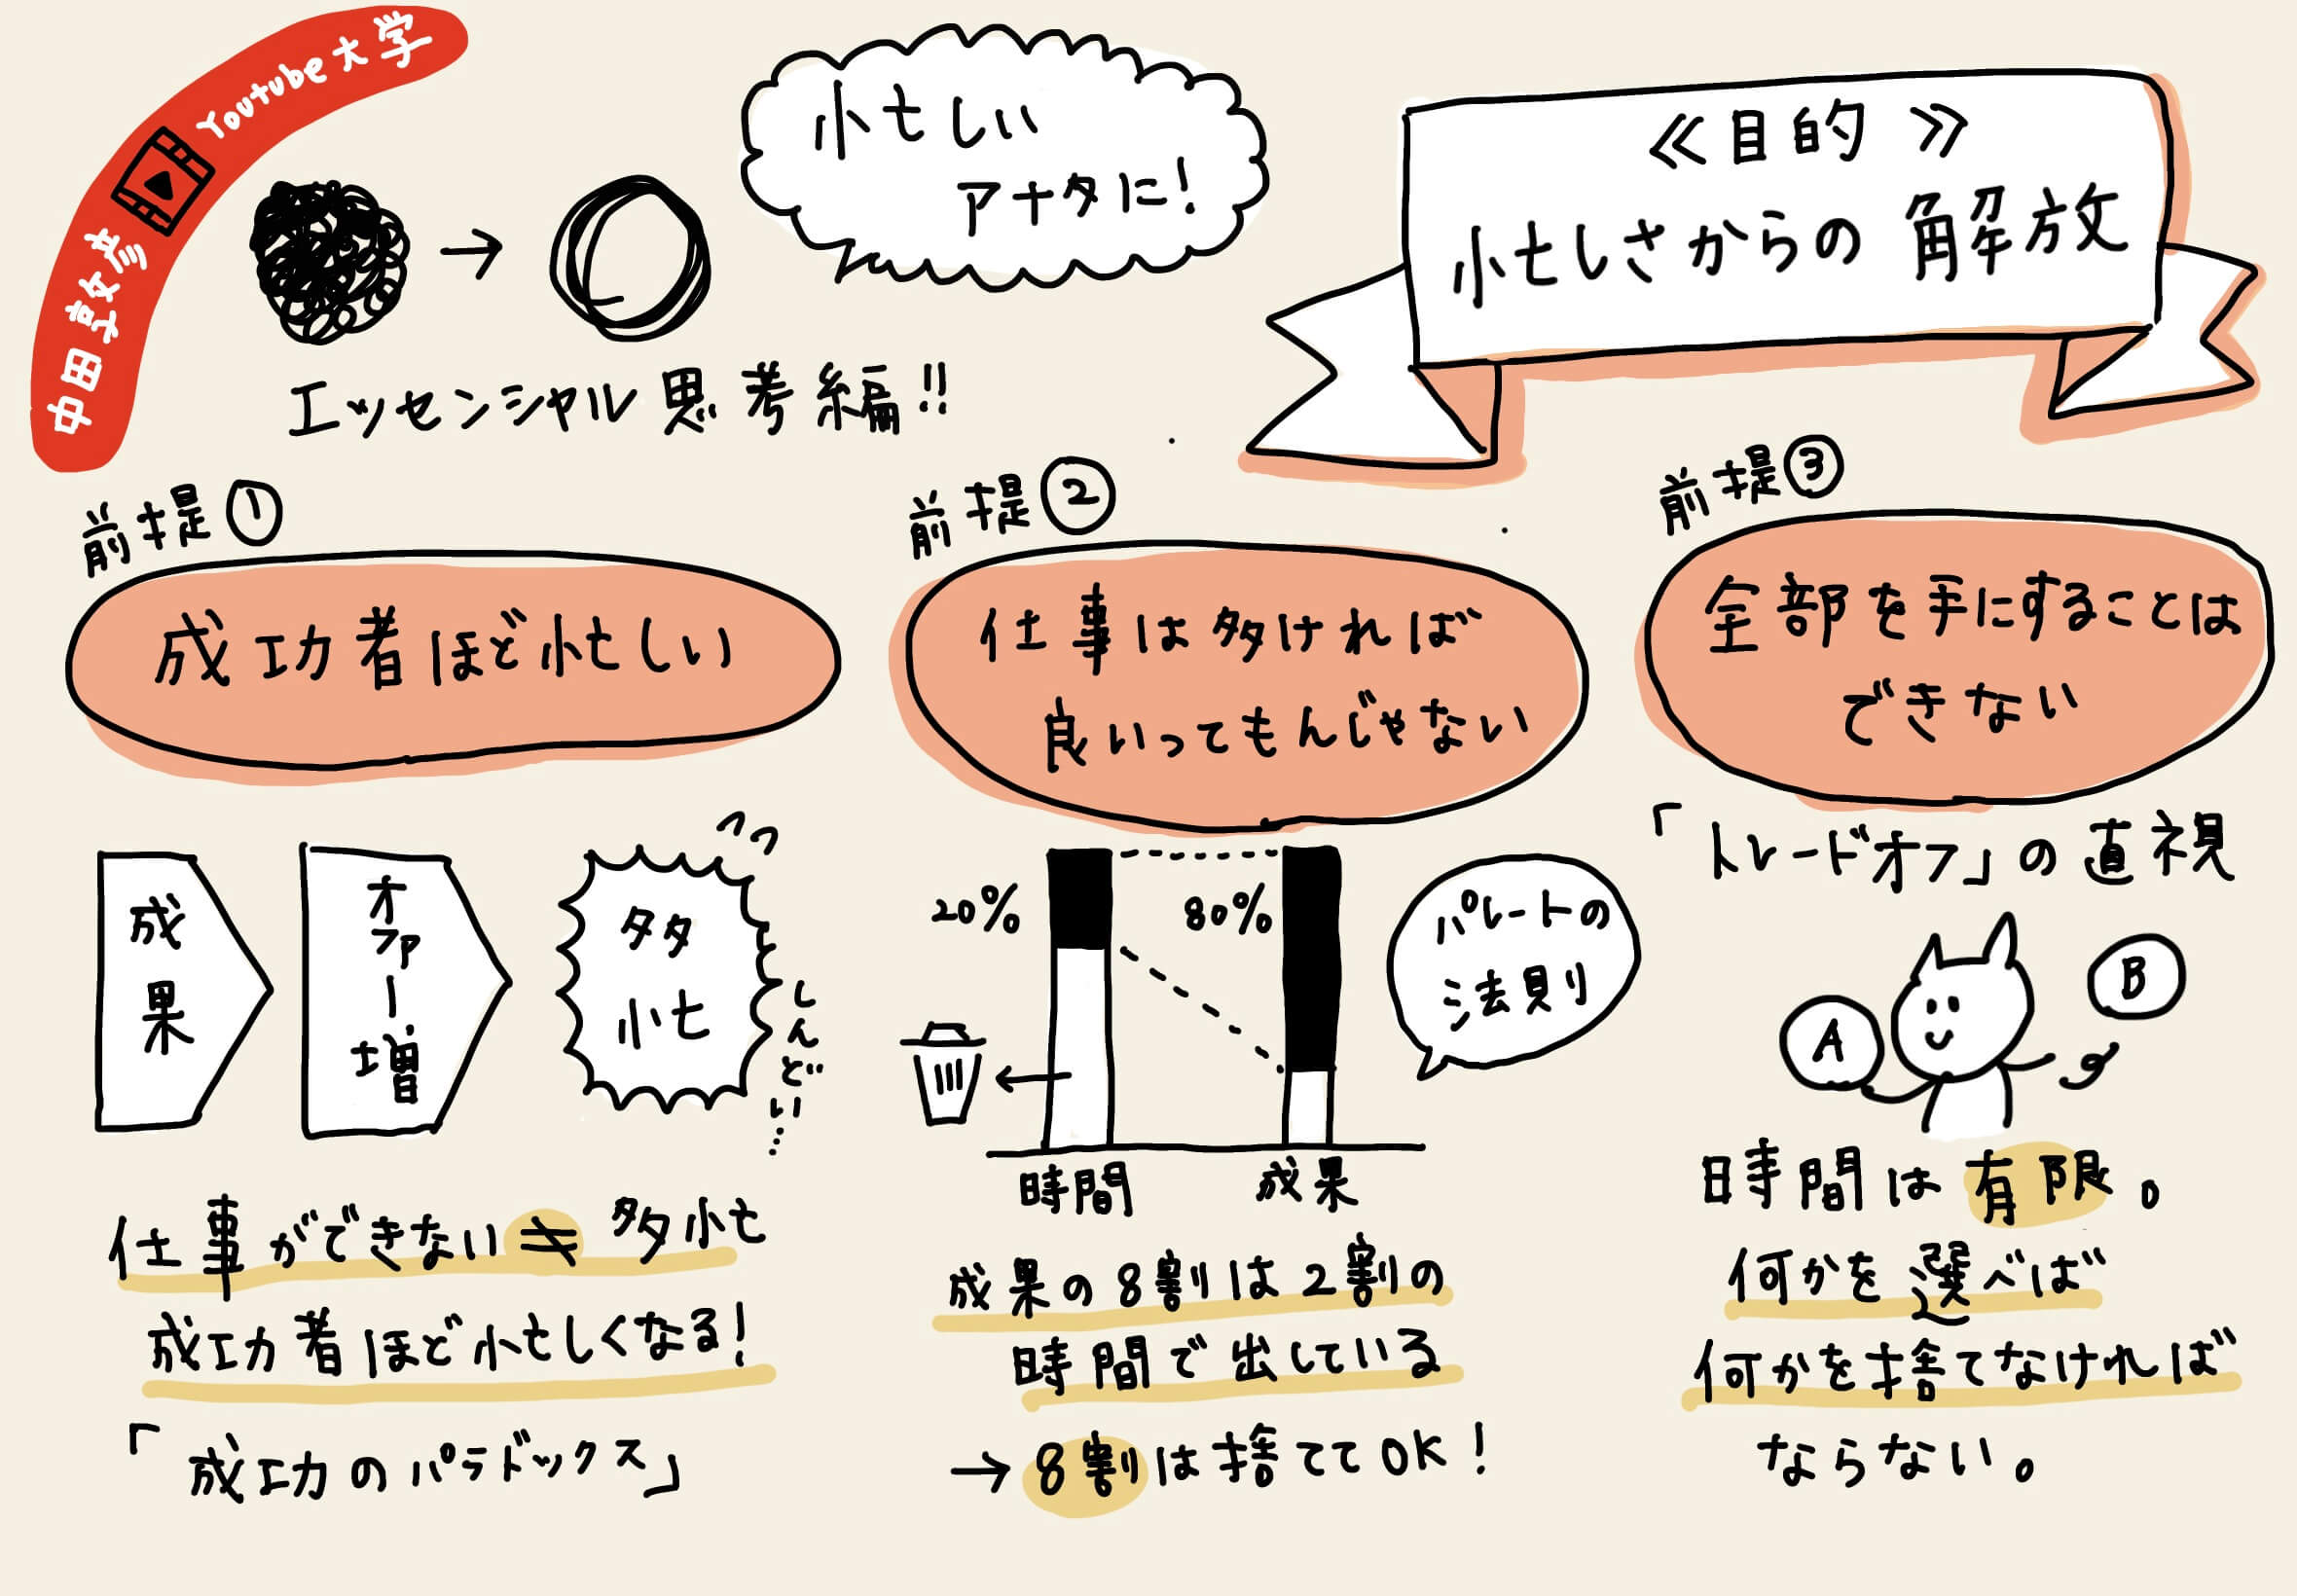 中田敦彦 Youtube大学
忙しい
アナタに!
エッセンシャル思考編!!
≪目的≫
忙しさからの解放
前提①
成功者ほど忙しい
成果
オファー増
多忙
しんどい…
仕事ができない≠多忙
成功者ほど忙しくなる!
「成功のパラドックス」
前提②
仕事は多ければ
良いってもんじゃない
20%
80%
パレートの
法則
時間
成果
成果の8割は2割の
時間で出している
→8割は捨ててOK!
前提③
全部を手にすることは
できない
「トレードオフ」の直視
A
B
時間は有限。
何かを選べば
何かを捨てなければ
ならない。